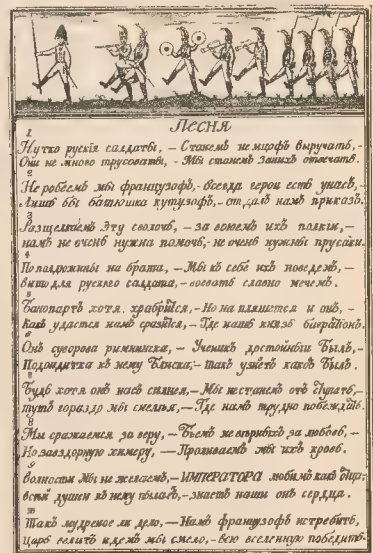 Песня
1
Нутко руския салдаты, – Станемъ немцофъ выручать, –
Они не много трусоваты, – Мы станемъ заних отвечать.
2
Не робеемъ мы французофъ, – всегда герои есть унасъ, –
Лишь бы батюшка кутузофъ, – отдалъ намъ приказъ.
3
Разщелкаемъ эту сволочь, – за воюемъ ихъ полкии, –
намъ не очень нужна помочь, – не очень нужны прусаки.
4
По палдюжины на брата, – Мы к себе ихъ поведемъ, –
вить для рускаго салдата, – воевать славно мечемъ.
5
Банопарт хотя храбрится, – Но на пляшется и онъ, –
Какъ удастся намъ сразится, – Где нашъ князь багратионъ.
6
Онъ суворова римнинска, – Ученикъ достойный былъ, –
Подойдитка к нему близка, – такъ узнеть каковъ былъ.
7
Будь хотя онъ насъ сильней, – Мы нестанемъ отъ ступать, –
тутъ гораздо мы смелья, – Где намъ трудно побеждать.
8
Мы сражаемся за веру, – бьемъ неверныхъ за любовь, –
Но завздорную химеру, – Проливаемъ мы ихъ кровь.
9
волности мы не желаемъ, – ИМПЕРАТОРА любимъ какъ отца, –
всей душей к нему пылаемъ, – знаетъ наши онъ сердца.
10
Такъ мудреное ли дело, – Намъ французофъ истребить,
царь велитъ идемъ мы смело, – всю вселенную победить.